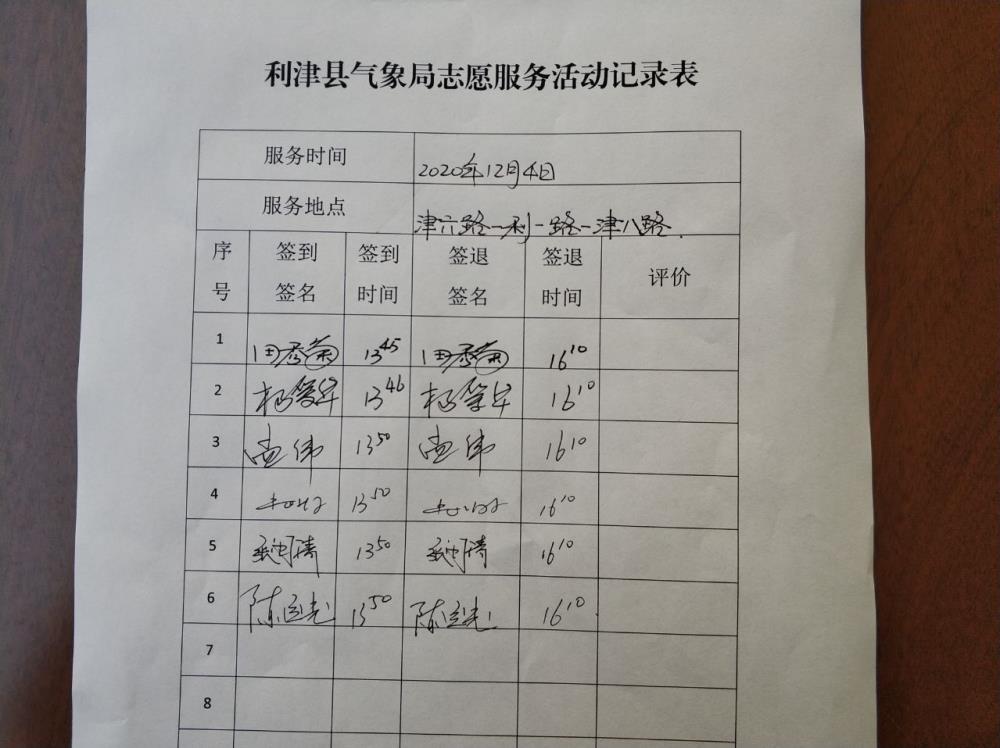 利津县气象局志愿服务活动记录表
服务时间 2020年12月4日
服务地点 津六路-利一路-津八路.
序号 签到签名 签到时间 签退签名 签退时间 评价
1 田秀菊 13 45 田秀菊 16 10
2 13 46 16 10
3 伟 13 50 伟 16 10
4 13 50 16 10
5 13 50 16 10
6 陈 13 50 陈 16 10
7
8